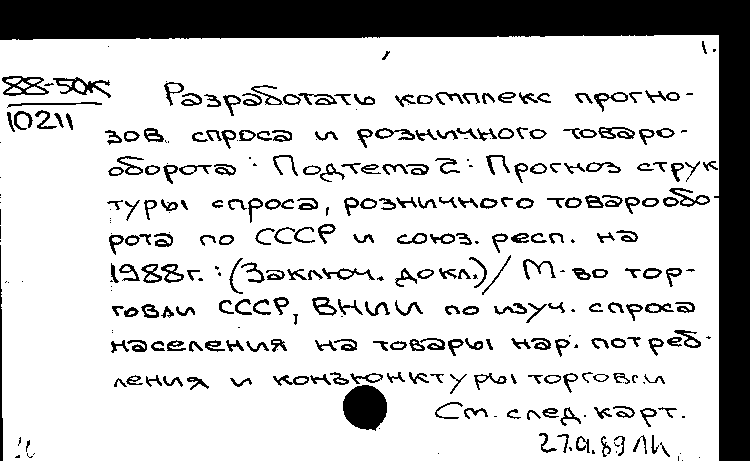 1.
88-50К
10211
Разработать комплекс прогно-
зов спроса и розничного товаро-
оборота : Подтема 2 : Прогноз струк
туры спроса, розничного товарообо-
рота по СССР и союз. респ. на
1988г. : (Заключ. докл.) / М-во тор-
говли СССР, ВНИИ по изуч. спроса
населения на товары нар. потреб-
ления и конъюнктуры торговли
См. след. карт.